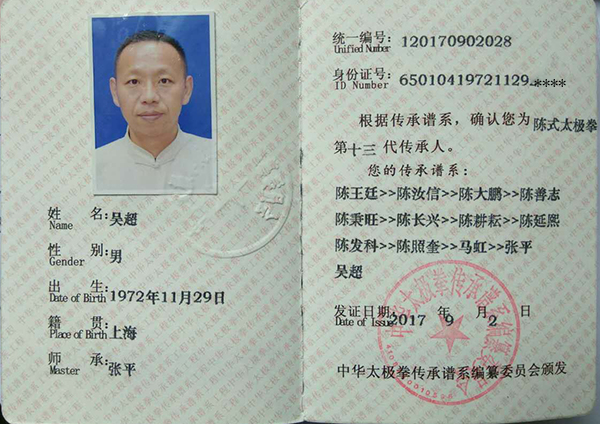 姓 名: 吴超
Name
性 别: 男
Gender
出 生: 1972年11月29日
Date of Birth
籍 贯: 上海
Place of Birth
师 承: 张平
Master
统一编号: 120170902028
Unified Number
身份证号: 65010419721129-****
ID Number
根据传承谱系,确认您为陈式太极拳
第十三代传承人。
您的传承谱系:
陈王廷>>陈汝信>>陈大鹏>>陈善志
陈秉旺>>陈长兴>>陈耕耘>>陈延熙
陈发科>>陈照奎>>马虹>>张平
吴超
发证日期: 2017 年 9 月 2 日
Date of Issue
中华太极拳传承谱系编纂委员会颁发
中华太极拳传承谱系编纂委员会